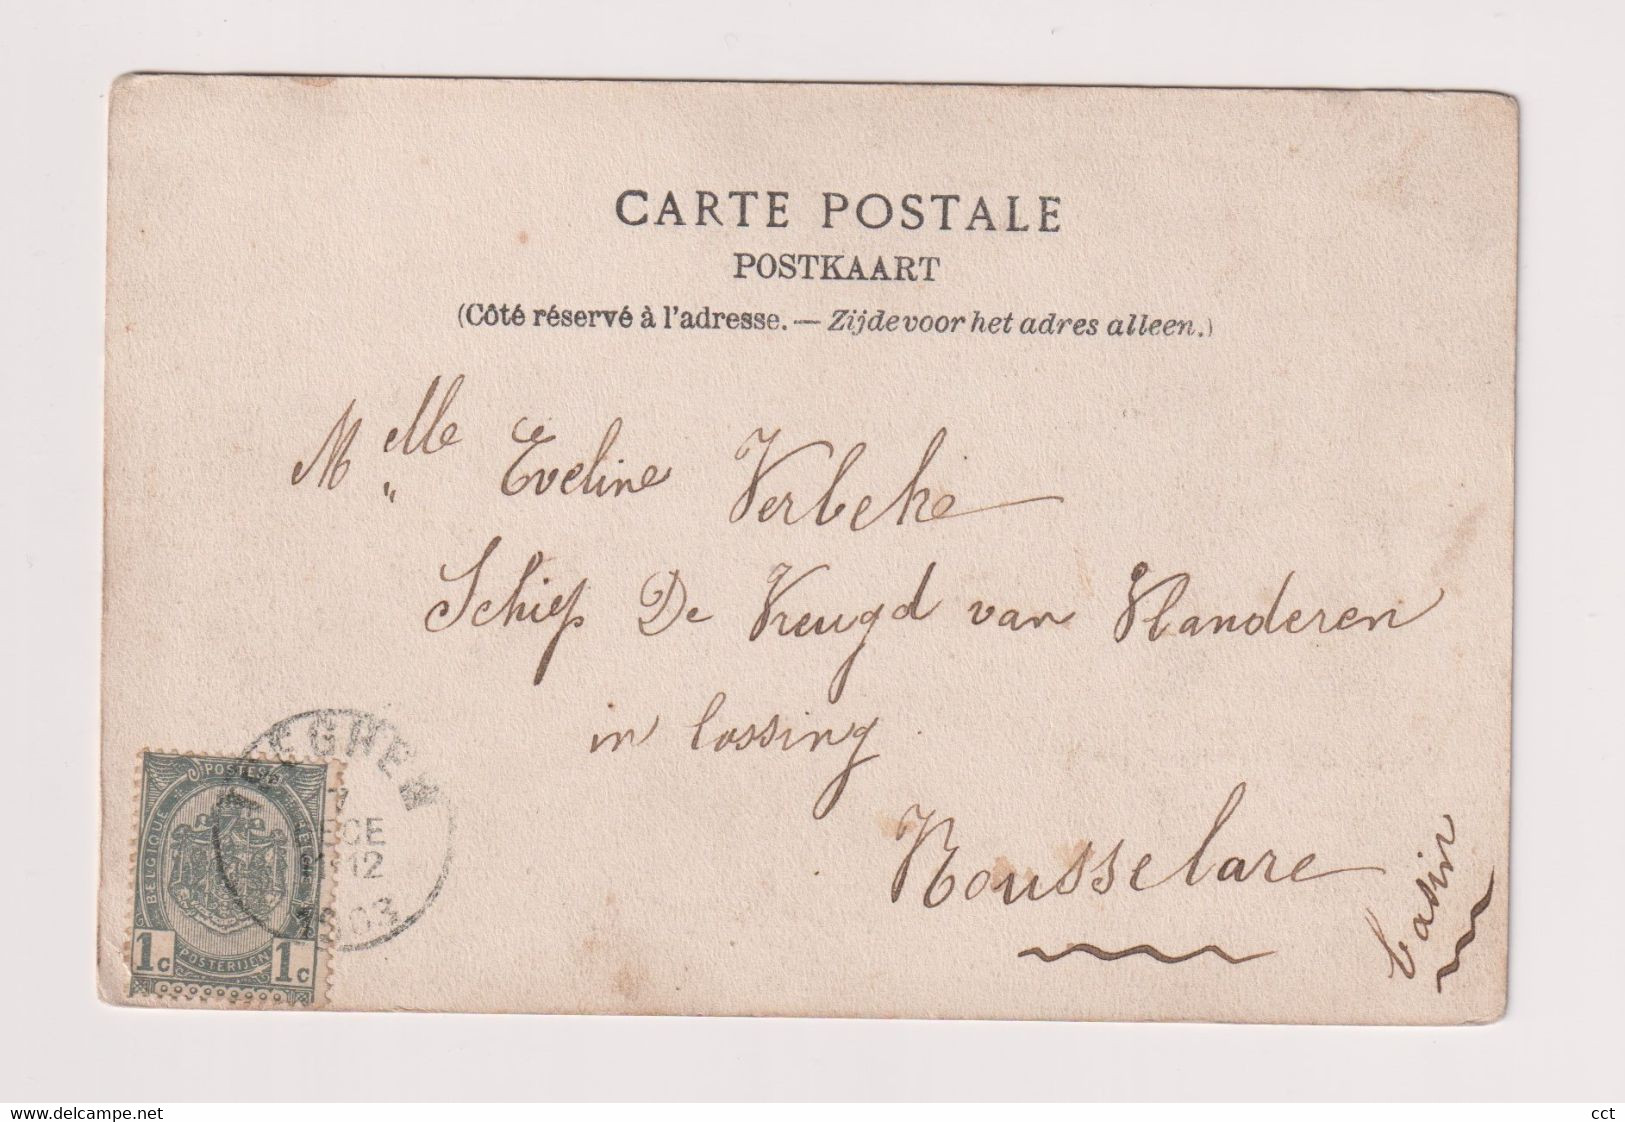 CARTE POSTALE
POSTKAART
(Côté réservé à l'adresse. — Zijde voor het adres alleen.)
Melle Eveline Verbeke
Schip De Vreugd van Vlanderen
in lossing
Rousselare
bassin
POSTES
BELGIQUE
POSTERIJEN
1c 1c
12
www.delcampe.net
cct